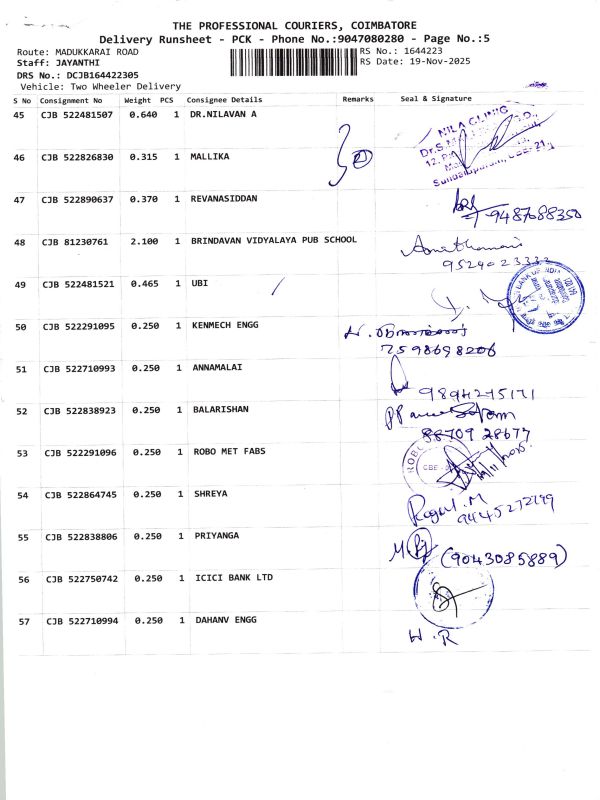 THE PROFESSIONAL COURIERS, COIMBATORE
Delivery Runsheet - PCK - Phone No.:9047080280 - Page No.:5
Route: MADUKKARAI ROAD RS No.: 1644223
Staff: JAYANTHI RS Date: 19-Nov-2025
DRS No.: DCJB164422305
Vehicle: Two Wheeler Delivery
S No Consignment No Weight PCS Consignee Details Remarks Seal & Signature
45 CJB 522481507 0.640 1 DR.NILAVAN A NILA CLINIC
46 CJB 522826830 0.315 1 MALLIKA
47 CJB 522890637 0.370 1 REVANASIDDAN
9487088350
48 CJB 81230761 2.100 1 BRINDAVAN VIDYALAYA PUB SCHOOL
9524023333
49 CJB 522481521 0.465 1 UBI
50 CJB 522291095 0.250 1 KENMECH ENGG
7598698206
51 CJB 522710993 0.250 1 ANNAMALAI
52 CJB 522838923 0.250 1 BALARISHAN
88709 28677
53 CJB 522291096 0.250 1 ROBO MET FABS
54 CJB 522864745 0.250 1 SHREYA
Ragul.M
9445272199
55 CJB 522838806 0.250 1 PRIYANGA
(9043085889)
56 CJB 522750742 0.250 1 ICICI BANK LTD
57 CJB 522710994 0.250 1 DAHANV ENGG
H.R